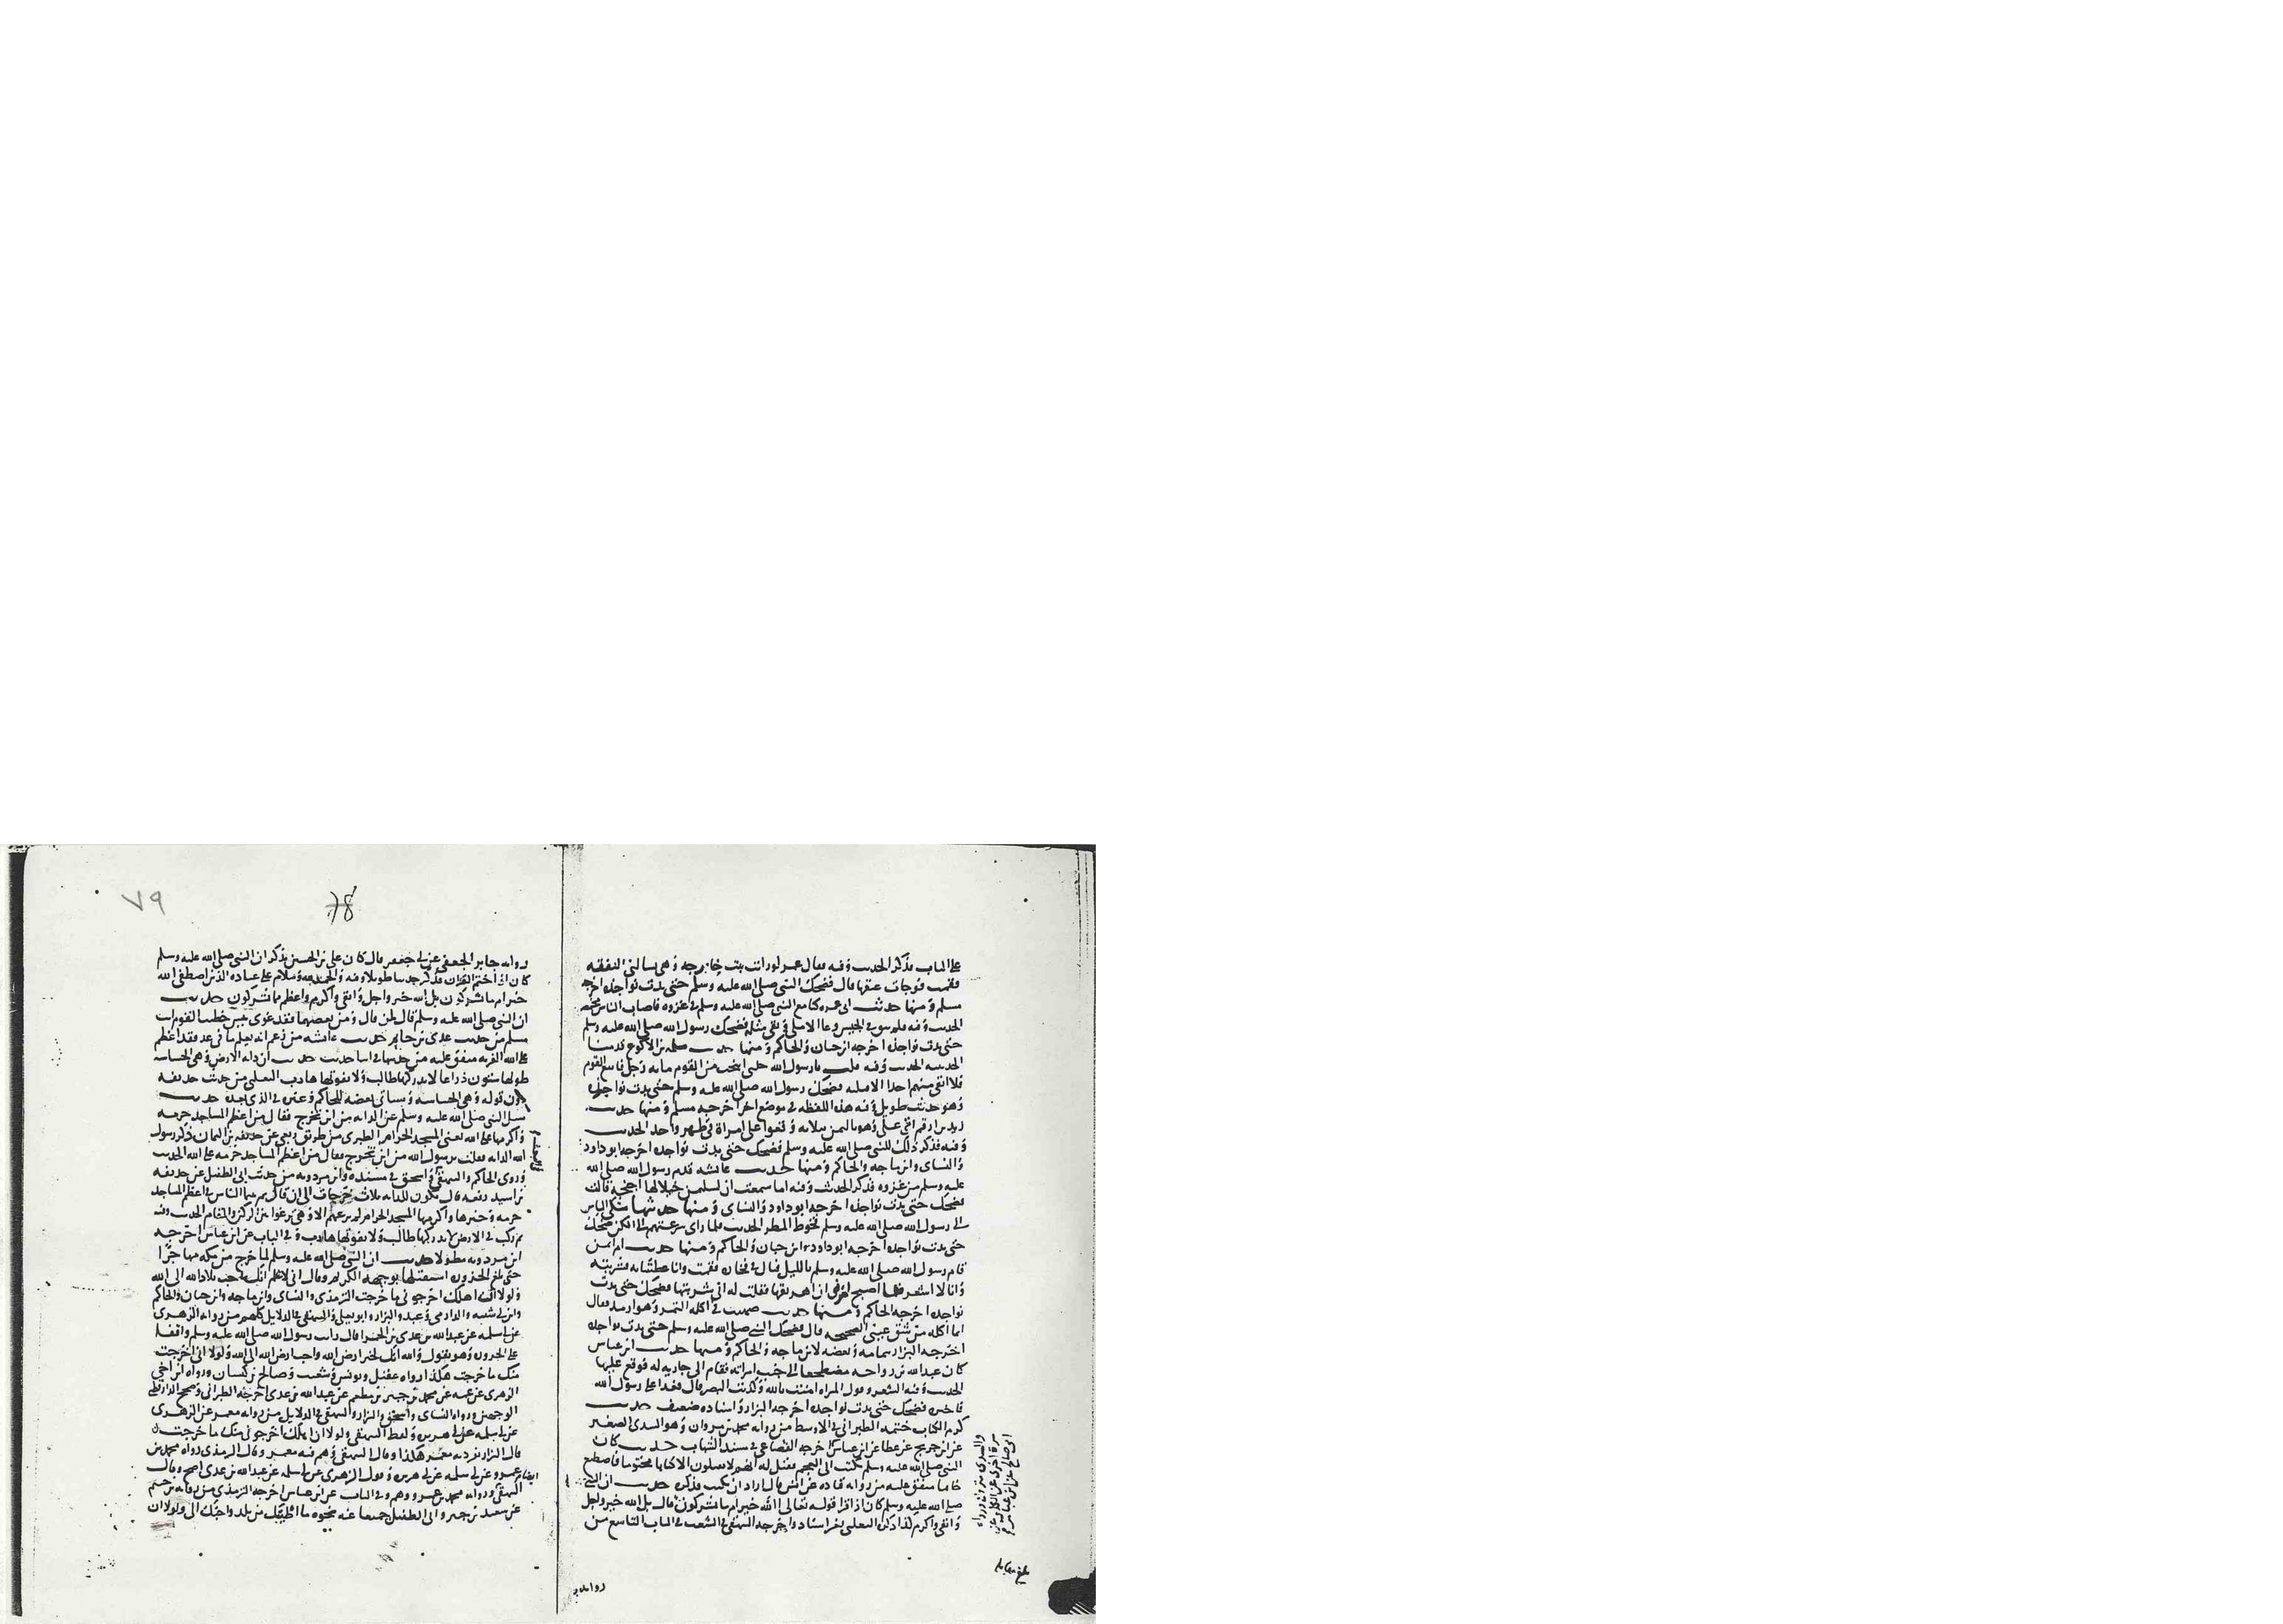 على الباب فذكر الحديث وفيه فقال عمر لو رأيت بنت خارجة وهي سالتني النفقه
فقمت فوجأت عنقها قال فضحك النبي صلى الله عليه وسلم حتى بدت نواجذه اخرجه
مسلم ومنها حديث ابى عمره كنا مع النبي صلى الله عليه وسلم في غزوه فاصاب الناس مخمصه
الحديث وفيه فما بقي في الجيش وعا الا ملى وبقي مثله فضحك رسول الله صلى الله عليه وسلم
حتى بدت نواجذه اخرجه ابن حبان والحاكم ومنها حديث سلمه بن الاكوع قدمنا
الحديبيه الحديث وفيه قلت يارسول الله خلني انتخب من القوم مايه رجل فاتبع القوم
فلا ابقي منهم احدا الا قتلته فضحك رسول الله صلى الله عليه وسلم حتى بدت نواجذه
وهو حديث طويل وفيه هذه اللفظه في موضع اخر اخرجه مسلم ومنها حديث
زيد بن ارقم اتي علي وهو باليمن بثلاثه وقعوا على امراة في طهر واحد الحديث
وفيه فذكر ذلك للنبي صلى الله عليه وسلم فضحك حتى بدت نواجذه اخرجه ابو داود
والنساى وابن ماجه والحاكم ومنها حديث عائشه قدم رسول الله صلى الله
عليه وسلم من غزوه فذكر الحديث وفيه اما سمعت ان لسليمن خيلا لها اجنحة قالت
فضحك حتى بدت نواجذه اخرجه ابو داود والنساى ومنها حديثها شكى الناس
الى رسول الله صلى الله عليه وسلم قحوط المطر الحديث فلما راى سرعتهم الى الكن ضحك
حتى بدت نواجذه اخرجه ابو داود وابن حبان والحاكم ومنها حديث ام ايمن
قام رسول الله صلى الله عليه وسلم بالليل فبال في فخاره فقمت وانا عطشانه فشربته
وانا لا اشعر فلما اصبح امرني ان اهريقها فقلت له اني شربتها فضحك حتى بدت
نواجذه اخرجه الحاكم ومنها حديث صهيب في اكله التمر وهو ارمد فقال
انما اكله من شق عيني الصحيحه قال فضحك النبي صلى الله عليه وسلم حتى بدت نواجذه
اخرجه البزار بتمامه وبعضه لابن ماجه والحاكم ومنها حديث ابن عباس
كان عبدالله بن رواحه مضطجعا الى جنب امراته فقام الى جاريه له فوقع عليها
الحديث وفيه الشعر وقول المراه امنت بالله وكذبت البصر قال فغدا على رسول الله
فاخبره فضحك حتى بدت نواجذه اخرجه البزار واسناده ضعيف حديث
كرم الكتاب ختمه الطبراني في الاوسط من روايه محمد بن مروان وهو السدي الصغير
عن ابن جريج عن عطا عن ابن عباس اخرجه القضاعي في مسند الشهاب حديث كان
النبي صلى الله عليه وسلم يكتب الى العجم فقيل له انهم لا يقبلون الا كتابا مختوما فاصطنع
خاتما متفق عليه من روايه قتاده عن انس قال اراد ان يكتب فذكره حديث ان النبي
صلى الله عليه وسلم كان اذا قرا قوله تعالى الله خير ام ما تشركون قال بل الله خير واجل
وابقى واكرم كذا ذكره الثعلبي بغير اسناد واخرجه البيهقي في الشعب في الباب التاسع من
والسدي متروك ورواه
مرة اخرى عن الكلبي عن
ابي صالح عن ابن عباس
بلغ مقابله
روايه جابر
78
٧٩
روايه جابر الجعفي عن ابي جعفر قال كان علي بن الحسين يذكر ان النبي صلى الله عليه وسلم
كان اذا ختم القران فذكر حديثا طويلا وفيه والحمد لله وسلام على عباده الذين اصطفى الله
خير ام ما تشركون بل الله خير واجل وابقى واكرم واعظم مما تشركون حديث
ان النبي صلى الله عليه وسلم قال لمن قال ومن يعصهما فقد غوى بيس خطيب القوم انت
مسلم من حديث عدي بن حاتم حديث عائشه من زعم انه يعلم ما في غد فقد اعظم
على الله الفريه متفق عليه من حديثها في اثنا حديث حديث ان دابه الارض وهي الجساسه
طولها ستون ذراعا لا يدركها طالب ولا يفوتها هارب الثعلبي من حديث حذيفه
دون قوله وهي الجساسه وسياتي بعضه للحاكم وغيره في الذي بعده حديث
سئل النبي صلى الله عليه وسلم عن الدابه من اين تخرج فقال من اعظم المساجد حرمه
واكرمها على الله يعني المسجد الحرام الطبري من طريق ربعي عن حذيفه بن اليمان ذكر رسول
الله الدابه فقلت يرسول الله من اين تخرج فقال من اعظم المساجد حرمه على الله الحديث
وروى الحاكم والبيهقي واسحق في مسنده وابن مردويه من حديث ابي الطفيل عن حذيفه
بن اسيد رفعه قال تكون للدابه ثلاث خرجات الى ان قال ثم بينما الناس في اعظم المساجد
حرمه وخيرها واكرمها المسجد الحرام لم يرعهم الا وهي ترغوا بين الركن والمقام الحديث وفيه
ثم ركب في الارض لا يدركها طالب ولا يفوتها هارب وفي الباب عن ابن عباس اخرجه
ابن مردويه مطولا حديث ان النبي صلى الله عليه وسلم لما خرج من مكه مهاجرا
حتى بلغ الحزوره استقبلها بوجهه الكريم وقال اني لاعلم انك احب بلاد الله الى الله
ولولا ان اهلك اخرجوني ما خرجت الترمذي والنساى وابن ماجه وابن حبان والحاكم
وابن ابي شيبه والدارمي وعبد والبزار وابو يعلى والبيهقي في الدلايل كلهم من روايه الزهري
عن ابي سلمه عن عبدالله بن عدي بن الحمرا قال رايت رسول الله صلى الله عليه وسلم واقفا
على الحزوره وهو يقول والله انك لخير ارض الله واحب ارض الله الى الله ولولا اني اخرجت
منك ما خرجت هكذا رواه عقيل ويونس وشعيب وصالح بن كيسان ورواه ابن اخي
الزهري عن عمه عن محمد بن جبير بن مطعم عن عبدالله بن عدي اخرجه الطبراني وصحح الدارقطني
الوجهين ورواه النساى واسحق والبزار والبيهقي في الدلايل من روايه معمر عن الزهري
عن ابي سلمه عن ابي هريره ولفظ البيهقي ولولا ان اهلك اخرجوني منك ما خرجت
قال البزار تفرد به معمر هكذا وقال البيهقي وهم فيه معمر وقال الترمذي رواه محمد بن
عمرو عن ابي سلمه عن ابي هريره وقول الزهري عن ابي سلمه عن عبدالله بن عدي اصح وقال
البيهقي وروايه محمد بن عمرو وهم وفي الباب عن ابن عباس اخرجه الترمذي من روايه بن خثيم
عن سعيد بن جبير وابي الطفيل جميعا عنه نحوه ما اطيبك من بلد واحبك الي ولولا ان
ايضا